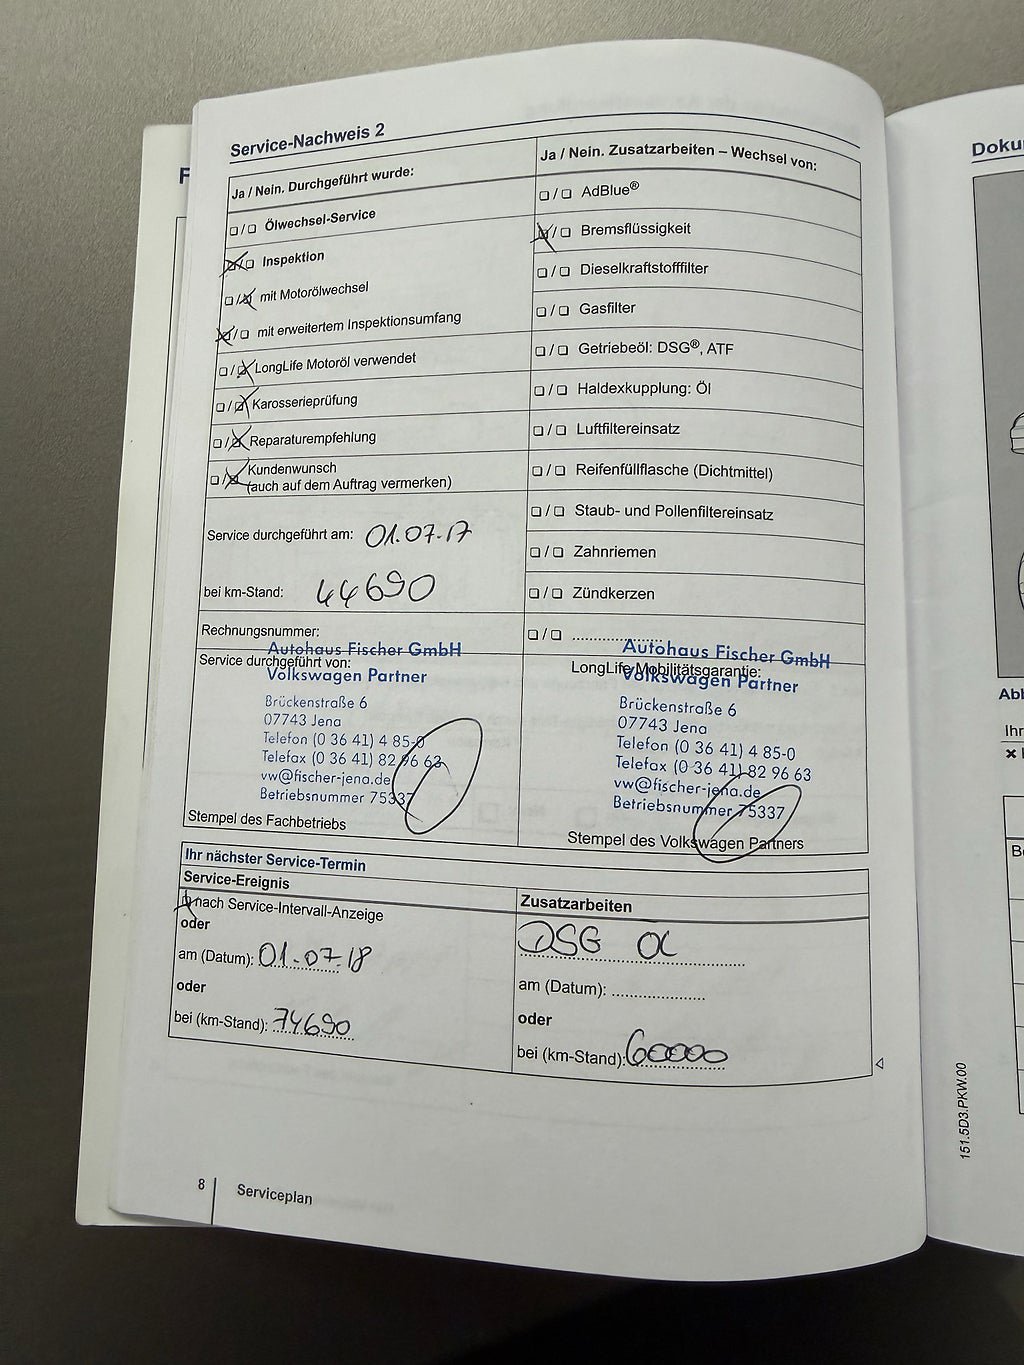 Service-Nachweis 2
Ja / Nein. Durchgeführt wurde:
❏/❏ Ölwechsel-Service
❏/❏ Inspektion
❏/❏ mit Motorölwechsel
❏/❏ mit erweitertem Inspektionsumfang
❏/❏ LongLife Motoröl verwendet
❏/❏ Karosserieprüfung
❏/❏ Reparaturempfehlung
❏/❏ Kundenwunsch
(auch auf dem Auftrag vermerken)
Service durchgeführt am: 01.07.17
bei km-Stand: 44690
Rechnungsnummer:
Service durchgeführt von:
Autohaus Fischer GmbH
Volkswagen Partner
Brückenstraße 6
07743 Jena
Telefon (0 36 41) 4 85-0
Telefax (0 36 41) 82 96 63
vw@fischer-jena.de
Betriebsnummer 75337
Stempel des Fachbetriebs
Ja / Nein. Zusatzarbeiten – Wechsel von:
❏/❏ AdBlue®
❏/❏ Bremsflüssigkeit
❏/❏ Dieselkraftstofffilter
❏/❏ Gasfilter
❏/❏ Getriebeöl: DSG®, ATF
❏/❏ Haldexkupplung: Öl
❏/❏ Luftfiltereinsatz
❏/❏ Reifenfüllflasche (Dichtmittel)
❏/❏ Staub- und Pollenfiltereinsatz
❏/❏ Zahnriemen
❏/❏ Zündkerzen
❏/❏ ....................
LongLife Mobilitätsgarantie:
Autohaus Fischer GmbH
Volkswagen Partner
Brückenstraße 6
07743 Jena
Telefon (0 36 41) 4 85-0
Telefax (0 36 41) 82 96 63
vw@fischer-jena.de
Betriebsnummer 75337
Stempel des Volkswagen Partners
Ihr nächster Service-Termin
Service-Ereignis
❏ nach Service-Intervall-Anzeige
oder
am (Datum): 01.07.18
oder
bei (km-Stand): 74690
Zusatzarbeiten
DSG Öl
am (Datum): ....................
oder
bei (km-Stand): 60000
8
Serviceplan
F
Doku
Abb
Ihr
151.5D3.PKW.00